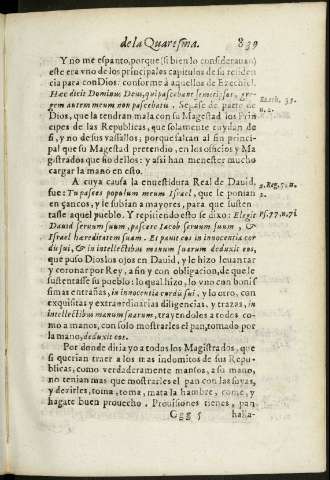 de la Quaresma. 839
Y no me espanto, porque (si bien lo consideravan)
este era vno de los principales capitulos de su residen
cia para con Dios, conforme a aquellos de Ezechiel.
Hæc dicit Dominus Deus, qui pascebant semetipsos, gre-
gem autem meum non pascebatis. Sepase de parte de
Ezech. 35.
n. 2.
Dios, que la tendran mala con su Magestad los Prin
cipes de las Republicas, que solamente cuydan de
si, y no de sus vassallos; porque faltan al fin princi-
pal que su Magestad pretendio, en los officios y Ma
gistrados que fio dellos: y assi han menester mucho
cargar la mano en esto.
A cuya causa la enuestidura Real de Dauid,
fue: Tu pasces populum meum Israel, que le ponian
2. Reg. 5. n.
2.
en çancos, y le subian a mayores, para que susten-
tasse aquel pueblo. Y repitiendo esto se dixo: Elegit
Ps. 77. n. 71
Dauid seruum suum, pascere Iacob seruum suum, &
Israel hæreditatem suam. Et pauit eos in innocentia cor
dis sui, & in intellectibus manuum suarum deduxit eos,
que puso Dios los ojos en Dauid, y le hizo leuantar
y coronar por Rey, a fin y con obligacion, de que le
sustentasse su pueblo: lo qual hizo, lo vno con bonis
simas entrañas, in innocentia cordis sui, y lo otro, con
exquisitas y extraordinarias diligencias, y trazas, in
intellectibus manuum suarum, trayendoles a todos co-
mo a manos, con solo mostrarles el pan, tomado por
la mano, deduxit eos.
Por donde diria yo a todos los Magistrados, que
si querian traer a los mas indomitos de sus Repu-
blicas, como verdaderamente mansos, a su mano,
no tenian mas que mostrarles el pan con las suyas,
y dezirles, toma, toma, mata la hambre, come, y
hagate buen prouecho. Prouisiones tienes, pan
Ggg 5 halla-